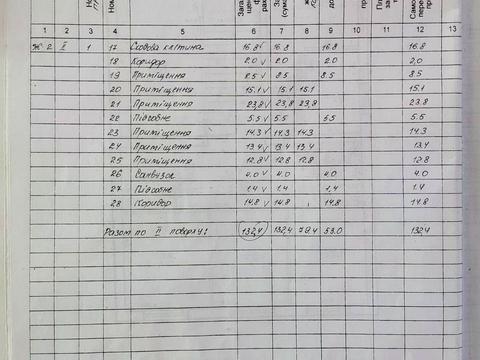 1 2 3 4 5 6 7 8 9 10 11 12 13
Ж 2 ІІ 1 17 Сходова клітина 16.8 16.8 16.8 16.8
18 Коридор 2.0 2.0 2.0 2,0
19 Приміщення 8.5 8.5 8.5 8.5
20 Приміщення 15.1 15.1 15.1 15.1
21 Приміщення 23,8 23,8 23,8 23.8
22 Підсобне 5.5 5.5 5.5 5.5
23 Приміщення 14.3 14.3 14.3 14.3
24 Приміщення 13.4 13.4 13.4 13.4
25 Приміщення 12.8 12.8 12.8 12.8
26 Санвузол 4.0 4.0 4.0 4.0
27 Підсобне 1.4 1.4 1,4 1.4
28 Коридор 14.8 14.8 14.8 14.8
Разом по ІІ поверху: 132,4 132,4 79.4 53.0 132,4